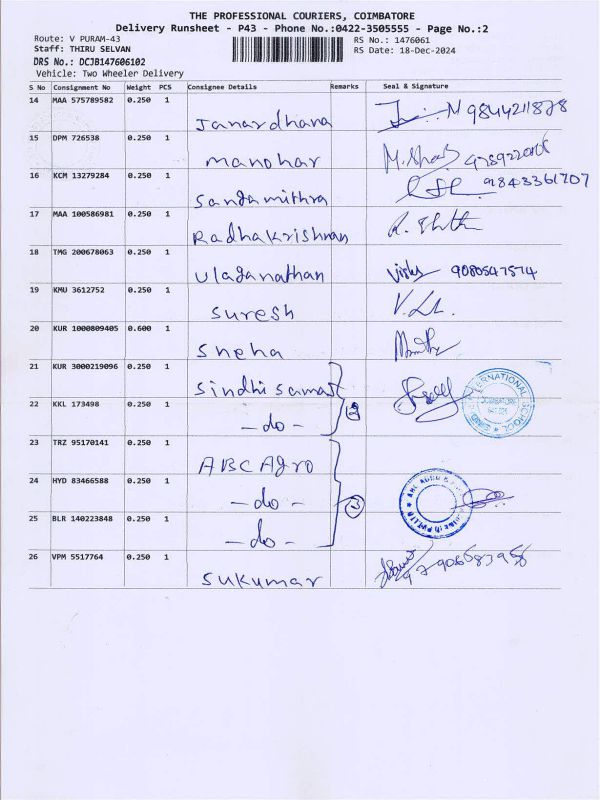 THE PROFESSIONAL COURIERS, COIMBATORE
Delivery Runsheet - P43 - Phone No.:0422-3505555 - Page No.:2
Route: V PURAM-43
RS No.: 1476061
Staff: THIRU SELVAN
RS Date: 18-Dec-2024
DRS No.: DCJB147606102
Vehicle: Two Wheeler Delivery
S No Consignment No Weight PCS Consignee Details Remarks Seal & Signature
14 MAA 575789582 0.250 1 Janardhana 9844211878
15 DPM 726538 0.250 1 manohar
16 KCM 13279284 0.250 1 Sangamithra 9843361707
17 MAA 100586981 0.250 1 Radhakrishnan
18 TMG 200678063 0.250 1 Ulaganathan 9080547574
19 KMU 3612752 0.250 1 Suresh
20 KUR 1000809405 0.600 1 Sneha
21 KUR 3000219096 0.250 1 Sindhi Samat
22 KKL 173498 0.250 1 -do- 2
23 TRZ 95170141 0.250 1 ABC Agro
24 HYD 83466588 0.250 1 -do- 3
25 BLR 140223848 0.250 1 -do-
26 VPM 5517764 0.250 1 Sukumar